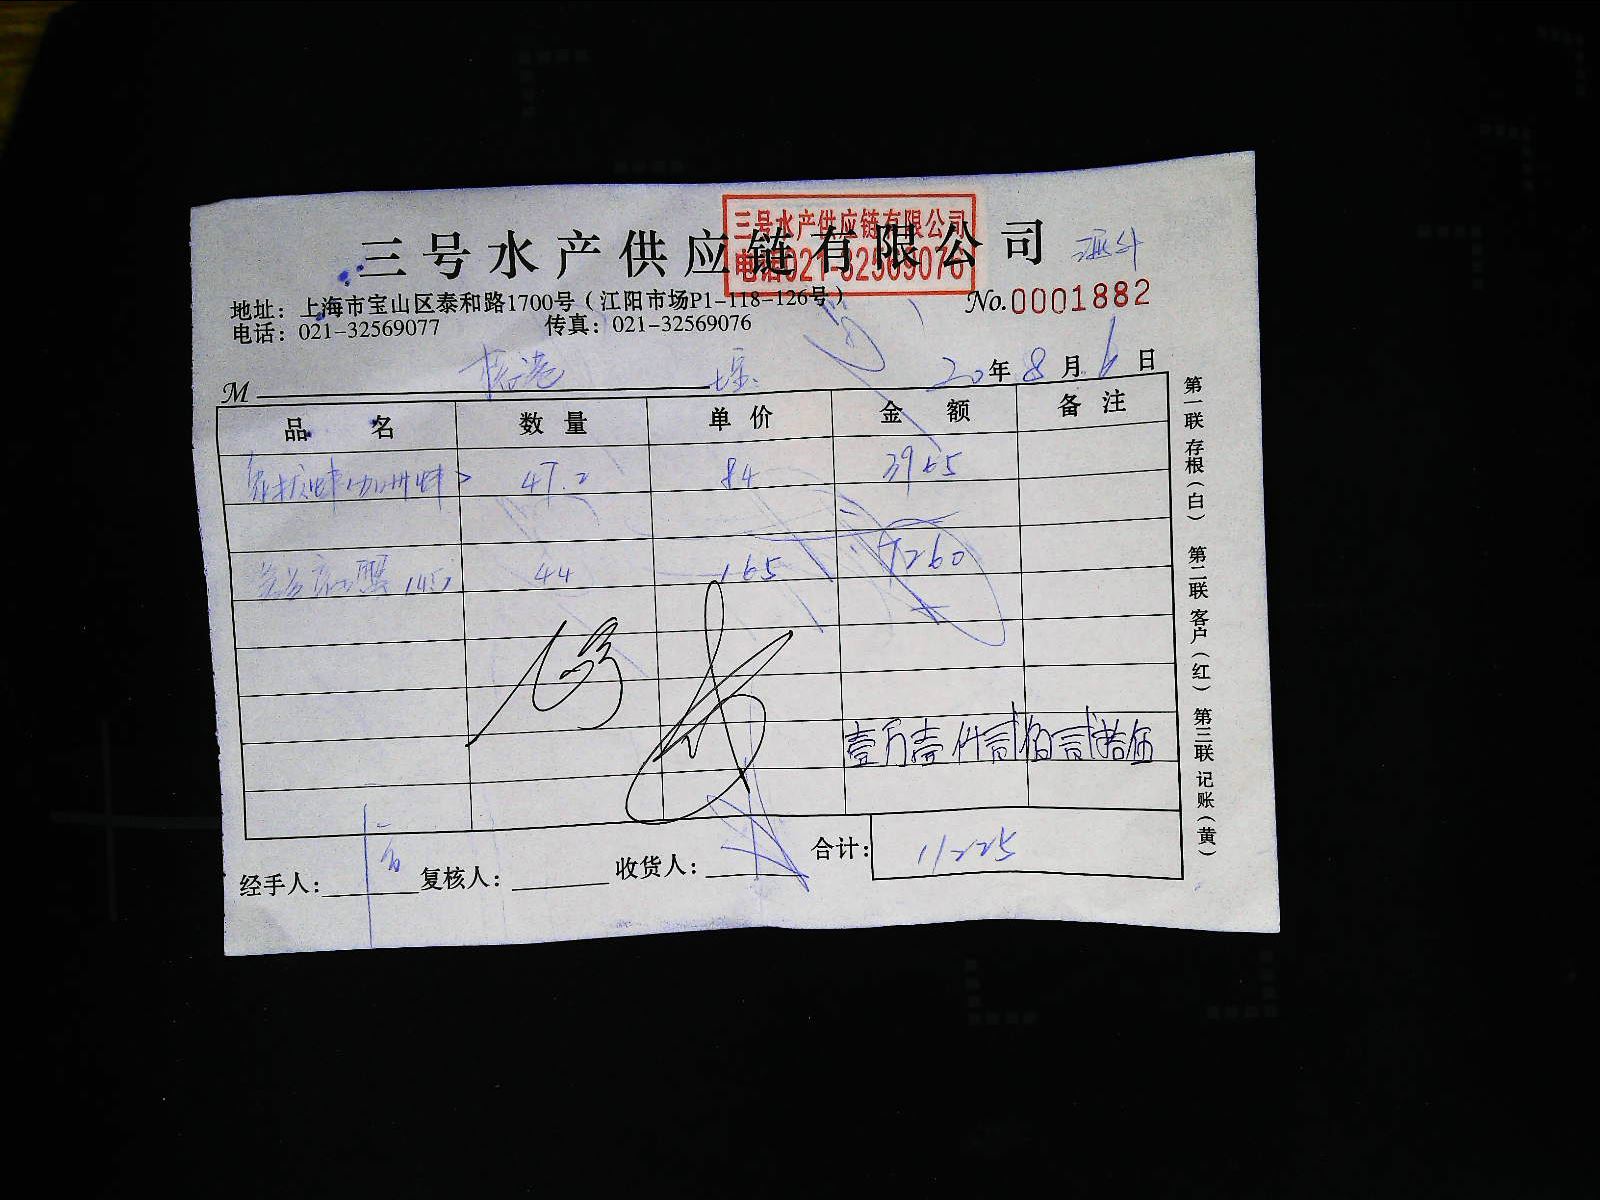 三号水产供应链有限公司
三号水产供应链有限公司
电话021-32569076
地址：上海市宝山区泰和路1700号（江阳市场P1-118-126号）
No.0001882
电话：021-32569077 传真：021-32569076
20年8月6日
M
品名 数量 单价 金额 备注
47.2 84 3965
蟹 44 165 7260
壹万壹仟贰佰贰拾伍
合计：11225
经手人： 复核人： 收货人：
第一联 存根（白） 第二联 客户（红） 第三联 记账（黄）